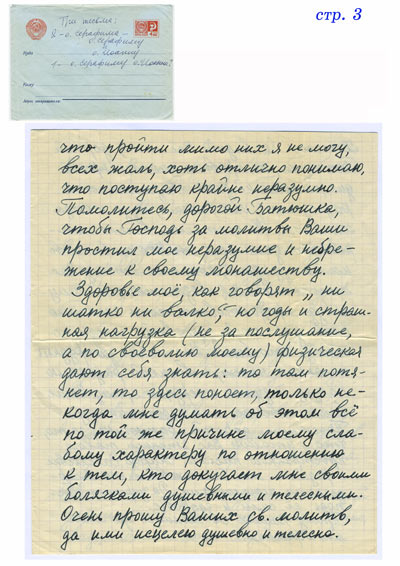 стр. 3
Три письма:
2 - о. Серафима -
о. Серафиму
о. Иоанну
1 - о. Серафиму о. Иоанна?
Куда
Кому
Адрес отправителя:
что пройти мимо них я не могу,
всех жаль, хоть отлично понимаю,
что поступаю крайне неразумно.
Помолитесь, дорогой Батюшка,
чтобы Господь за молитвы Ваши
простил мое неразумие и небре-
жение к своему монашеству.
Здоровье моё, как говорят „ни
шатко ни валко", но годы и страш-
ная нагрузка (не за послушание,
а по своеволию моему) физическая
дают себя знать: то там потя-
нет, то здесь поноет, только не-
когда мне думать об этом всё
по той же причине моему сла-
бому характеру по отношению
к тем, кто докучает мне своими
болячками душевными и телесными.
Очень прошу Ваших св. молитв,
да ими исцелею душевно и телесно.